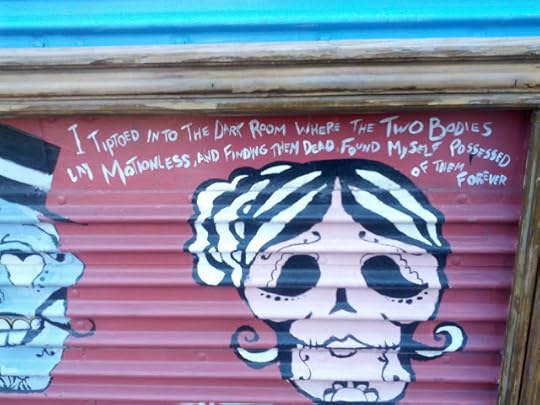 I TIPTOED INTO THE DARK ROOM WHERE THE TWO BODIES
LAY MOTIONLESS, AND FINDING THEM DEAD, FOUND MYSELF POSSESSED
OF THEM
FOREVER